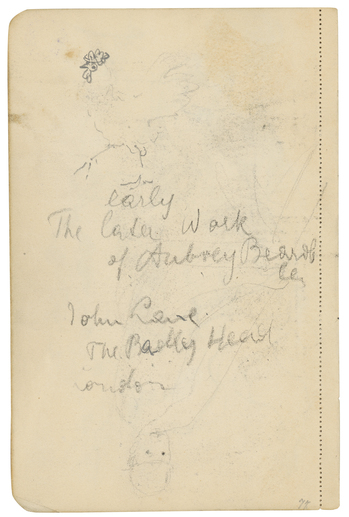 early
The later Work
of Aubrey Beards
ley
John Lane
The Badley Head
London